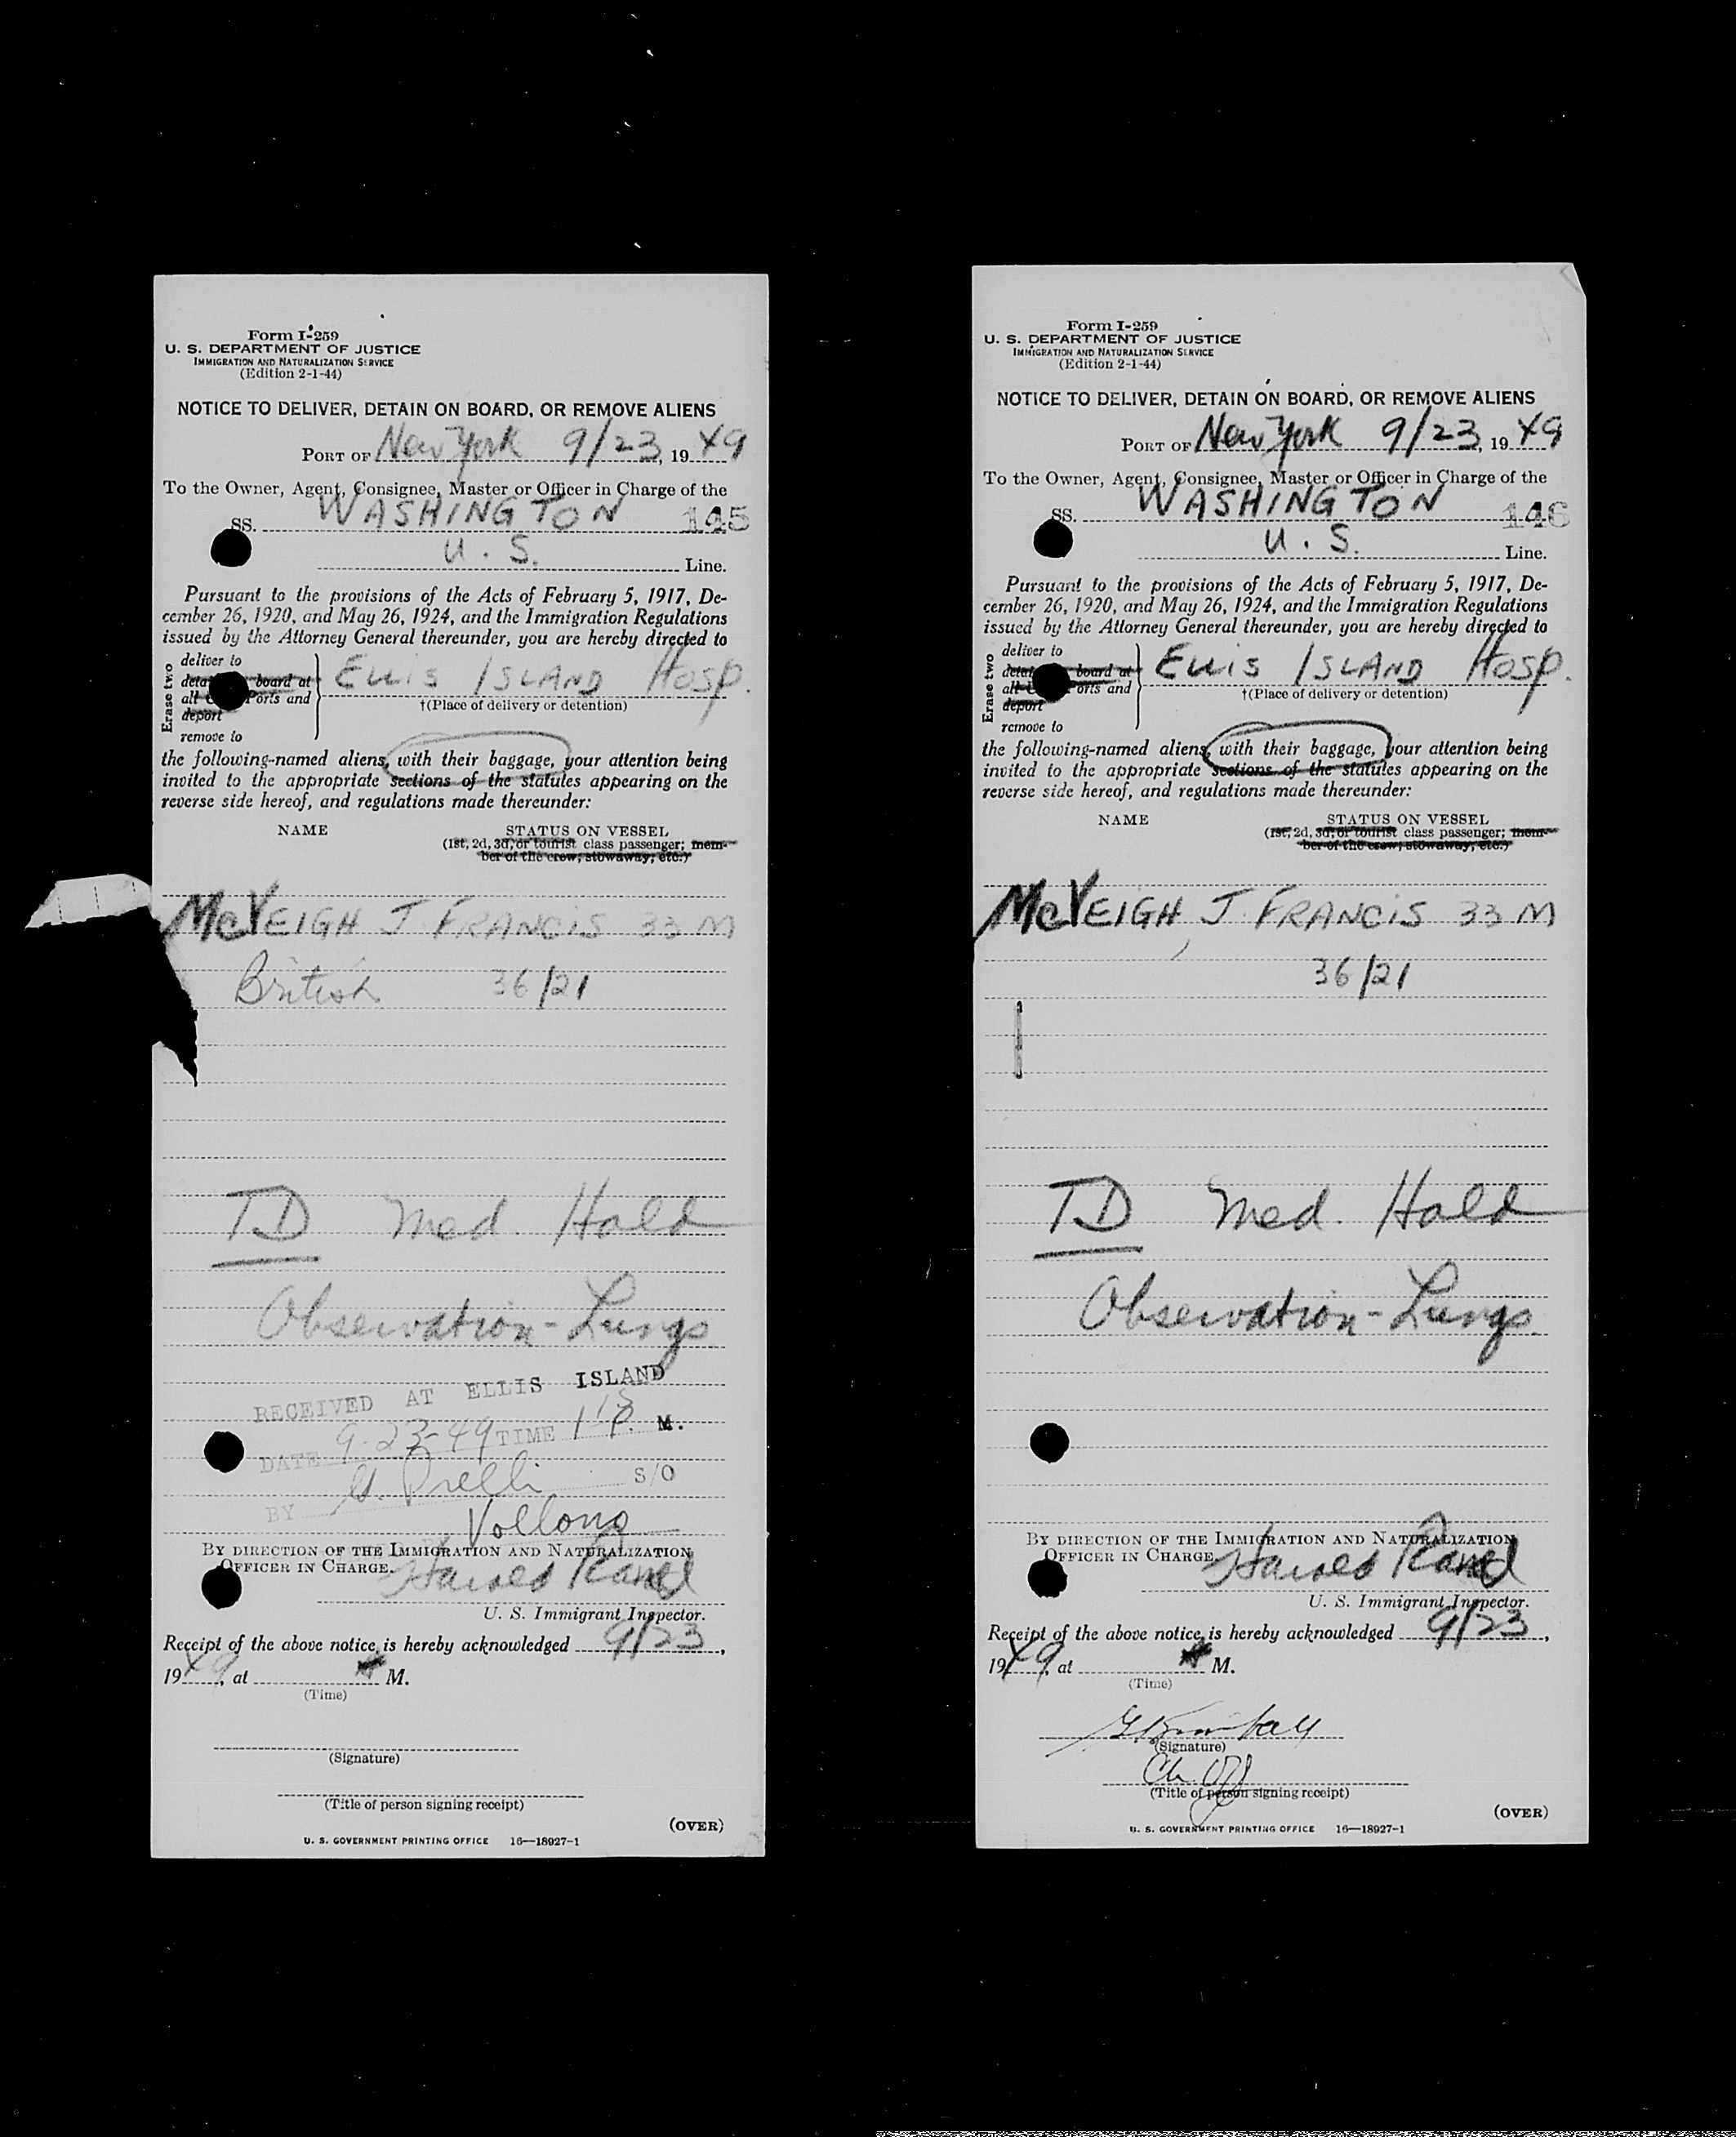 Form I-259
U. S. DEPARTMENT OF JUSTICE
IMMIGRATION AND NATURALIZATION SERVICE
(Edition 2-1-44)
NOTICE TO DELIVER, DETAIN ON BOARD, OR REMOVE ALIENS
PORT OF New York 9/23, 19 49
To the Owner, Agent, Consignee, Master or Officer in Charge of the
SS. WASHINGTON 145
U. S. Line.
Pursuant to the provisions of the Acts of February 5, 1917, De-
cember 26, 1920, and May 26, 1924, and the Immigration Regulations
issued by the Attorney General thereunder, you are hereby directed to
Erase two
deliver to
board at
all Ports and
deport
remove to
ELLIS ISLAND Hosp.
†(Place of delivery or detention)
the following-named aliens, with their baggage, your attention being
invited to the appropriate sections of the statutes appearing on the
reverse side hereof, and regulations made thereunder:
NAME STATUS ON VESSEL
(1st, 2d, 3d, or tourist class passenger; mem-
ber of the crew; stowaway; etc.)
McVEIGH J FRANCIS 33 M
British 36/21
TD Med. Hold
Observation - Lungs
RECEIVED AT ELLIS ISLAND
DATE 9-23-49 TIME 1 15 P. M.
BY S/O
BY DIRECTION OF THE IMMIGRATION AND NATURALIZATION
OFFICER IN CHARGE.
U. S. Immigrant Inspector.
Receipt of the above notice is hereby acknowledged 9/23,
1949, at M.
(Time)
(Signature)
(Title of person signing receipt)
(OVER)
U. S. GOVERNMENT PRINTING OFFICE 16—18927-1
Form I-259
U. S. DEPARTMENT OF JUSTICE
IMMIGRATION AND NATURALIZATION SERVICE
(Edition 2-1-44)
NOTICE TO DELIVER, DETAIN ON BOARD, OR REMOVE ALIENS
PORT OF New York 9/23, 19 49
To the Owner, Agent, Consignee, Master or Officer in Charge of the
SS. WASHINGTON 146
U. S. Line.
Pursuant to the provisions of the Acts of February 5, 1917, De-
cember 26, 1920, and May 26, 1924, and the Immigration Regulations
issued by the Attorney General thereunder, you are hereby directed to
Erase two
deliver to
board at
all Ports and
deport
remove to
ELLIS ISLAND Hosp.
†(Place of delivery or detention)
the following-named aliens, with their baggage, your attention being
invited to the appropriate sections of the statutes appearing on the
reverse side hereof, and regulations made thereunder:
NAME STATUS ON VESSEL
(1st, 2d, 3d, or tourist class passenger; mem-
ber of the crew; stowaway; etc.)
McVEIGH, J FRANCIS 33 M
36/21
TD Med. Hold
Observation - Lungs
BY DIRECTION OF THE IMMIGRATION AND NATURALIZATION
OFFICER IN CHARGE.
U. S. Immigrant Inspector.
Receipt of the above notice is hereby acknowledged 9/23,
1949, at M.
(Time)
(Signature)
Ch. Off
(Title of person signing receipt)
(OVER)
U. S. GOVERNMENT PRINTING OFFICE 16—18927-1